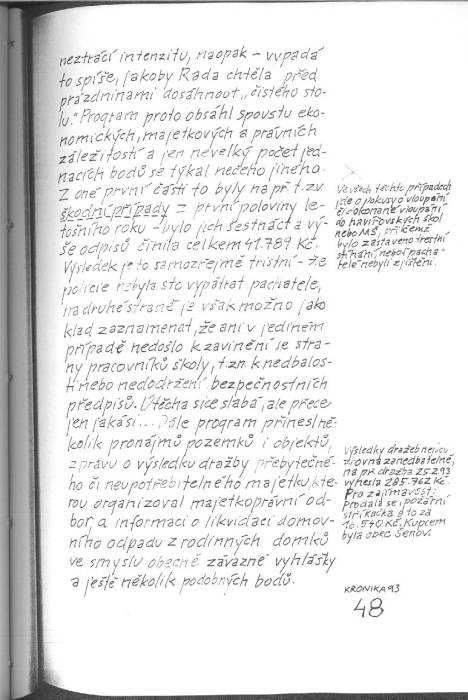 neztrácí intenzitu, naopak – vypadá
to spíše, jakoby Rada chtěla před
prázdninami dosáhnout „čistého sto-
lu." Program proto obsáhl spoustu eko-
nomických, majetkových a právních
záležitostí a jen nevelký počet jed-
nacích bodů se týkal něčeho jiného.
Z oné první části to byly na př. t.zv.
škodní případy z první poloviny le-
tošního roku – bylo jich šestnáct a vý-
še odpisů činila celkem 41.789 Kč.
Výsledek je to samozřejmě tristní – že
policie nebyla sto vypátrat pachatele,
na druhé straně je však možno jako
klad zaznamenat, že ani v jediném
případě nedošlo k zavinění ze stra-
ny pracovníků školy, t.zn. k nedbalos-
ti nebo nedodržení bezpečnostních
předpisů. Útěcha sice slabá, ale přece
jen jakási... Dále program přinesl ně-
kolik pronájmů pozemků i objektů,
zprávu o výsledku dražby přebytečné-
ho či neupotřebitelného majetku, kte-
rou organizoval majetkoprávní od-
bor, a informaci o likvidaci domov-
ního odpadu z rodinných domků
ve smyslu obecně závazné vyhlášky
a ještě několik podobných bodů.
Ve všech těchto případech
jde o pokusy o vloupání
či dokonané vloupání
do havířovských škol
nebo MŠ, přičemž
bylo zastaveno trestní
stíhání, neboť pacha-
telé nebyli zjištěni.
Výsledky dražeb nejsou
zrovna zanedbatelné,
na př. dražba 25.2.93
vynesla 285.762 Kč.
Pro zajímavost:
prodala se i požární
stříkačka a to za
16.540 Kč. Kupcem
byla obec Šenov.
KRONIKA 93
48